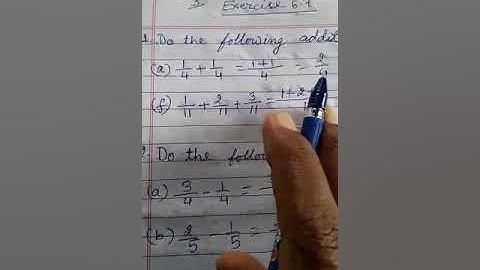 Exercise 6.1
1. Do the following addit
(a) 1/4 + 1/4 = 1+1/4 = 2/4
(f) 1/11 + 2/11 + 3/11 = 1+2
2. Do the follow
(a) 3/4 - 1/4 =
(b) 2/5 - 1/5 =